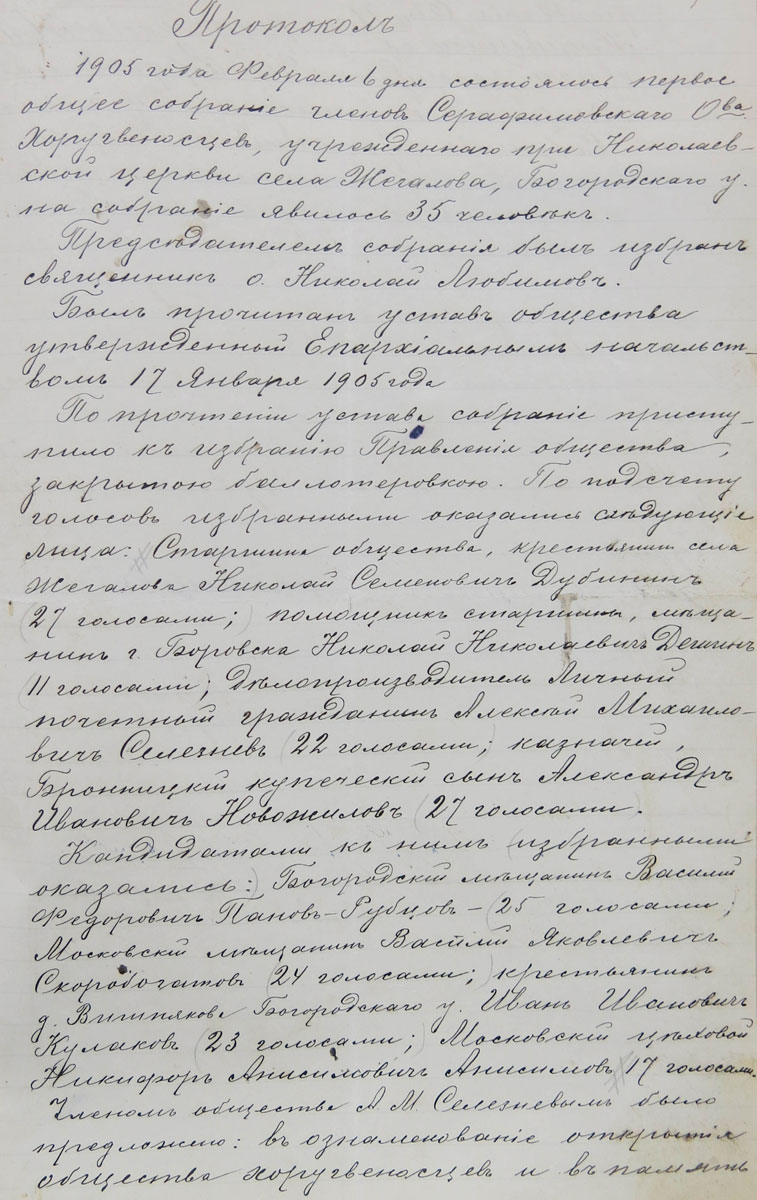 Протоколъ
1905 года Февраля 6 дня состоялось первое
общее собраніе членовъ Серафимовскаго О-ва
Хоругвеносцев, учрежденнаго при Николаев-
ской церкви села Жегалова, Богородскаго у.
на собраніе явилось 35 человѣкъ.
Предсѣдателемъ собранія былъ избранъ
священникъ о. Николай Любимовъ.
Былъ прочитанъ уставъ общества
утвержденный Епархіальнымъ начальст-
вомъ 17 Января 1905 года
По прочтеніи устава собраніе присту-
пило къ избранію Правленія общества,
закрытою баллотеровкою. По подсчету
голосовъ избранными оказались слѣдующіе
лица: Старшина общества, крестьянин села
Жегалова Николай Семеновичъ Дубининъ
(27 голосами;) помощникъ старшины, мѣща-
нинъ г. Боровска Николай Николаевичъ Дешинъ
(11 голосами; дѣлопроизводитель Личный
почетный гражданинъ Алексѣй Михаило-
вичъ Селезневъ (22 голосами; казначей,
Бронницкій купеческій сынъ Александръ
Ивановичъ Новожиловъ (27 голосами.
Кандидатами къ нимъ (избранными
оказались:) Богородскій мѣщанинъ Василій
Федоровичъ Пановъ-Рубцовъ - (25 голосами;
Московскій мѣщанинъ Василій Яковлевичъ
Скоробогатовъ (24 голосами;) крестьянинъ
д. Вишнякова Богородскаго у. Иванъ Ивановичъ
Кулаковъ (23 голосами;) Московскій цѣховой
Никифоръ Анисимовичъ Анисимовъ 17 голосами.
Членомъ общества А. М. Селезневымъ было
предложено: въ ознаменованіе открытія
общества хоругвеносцев и въ память